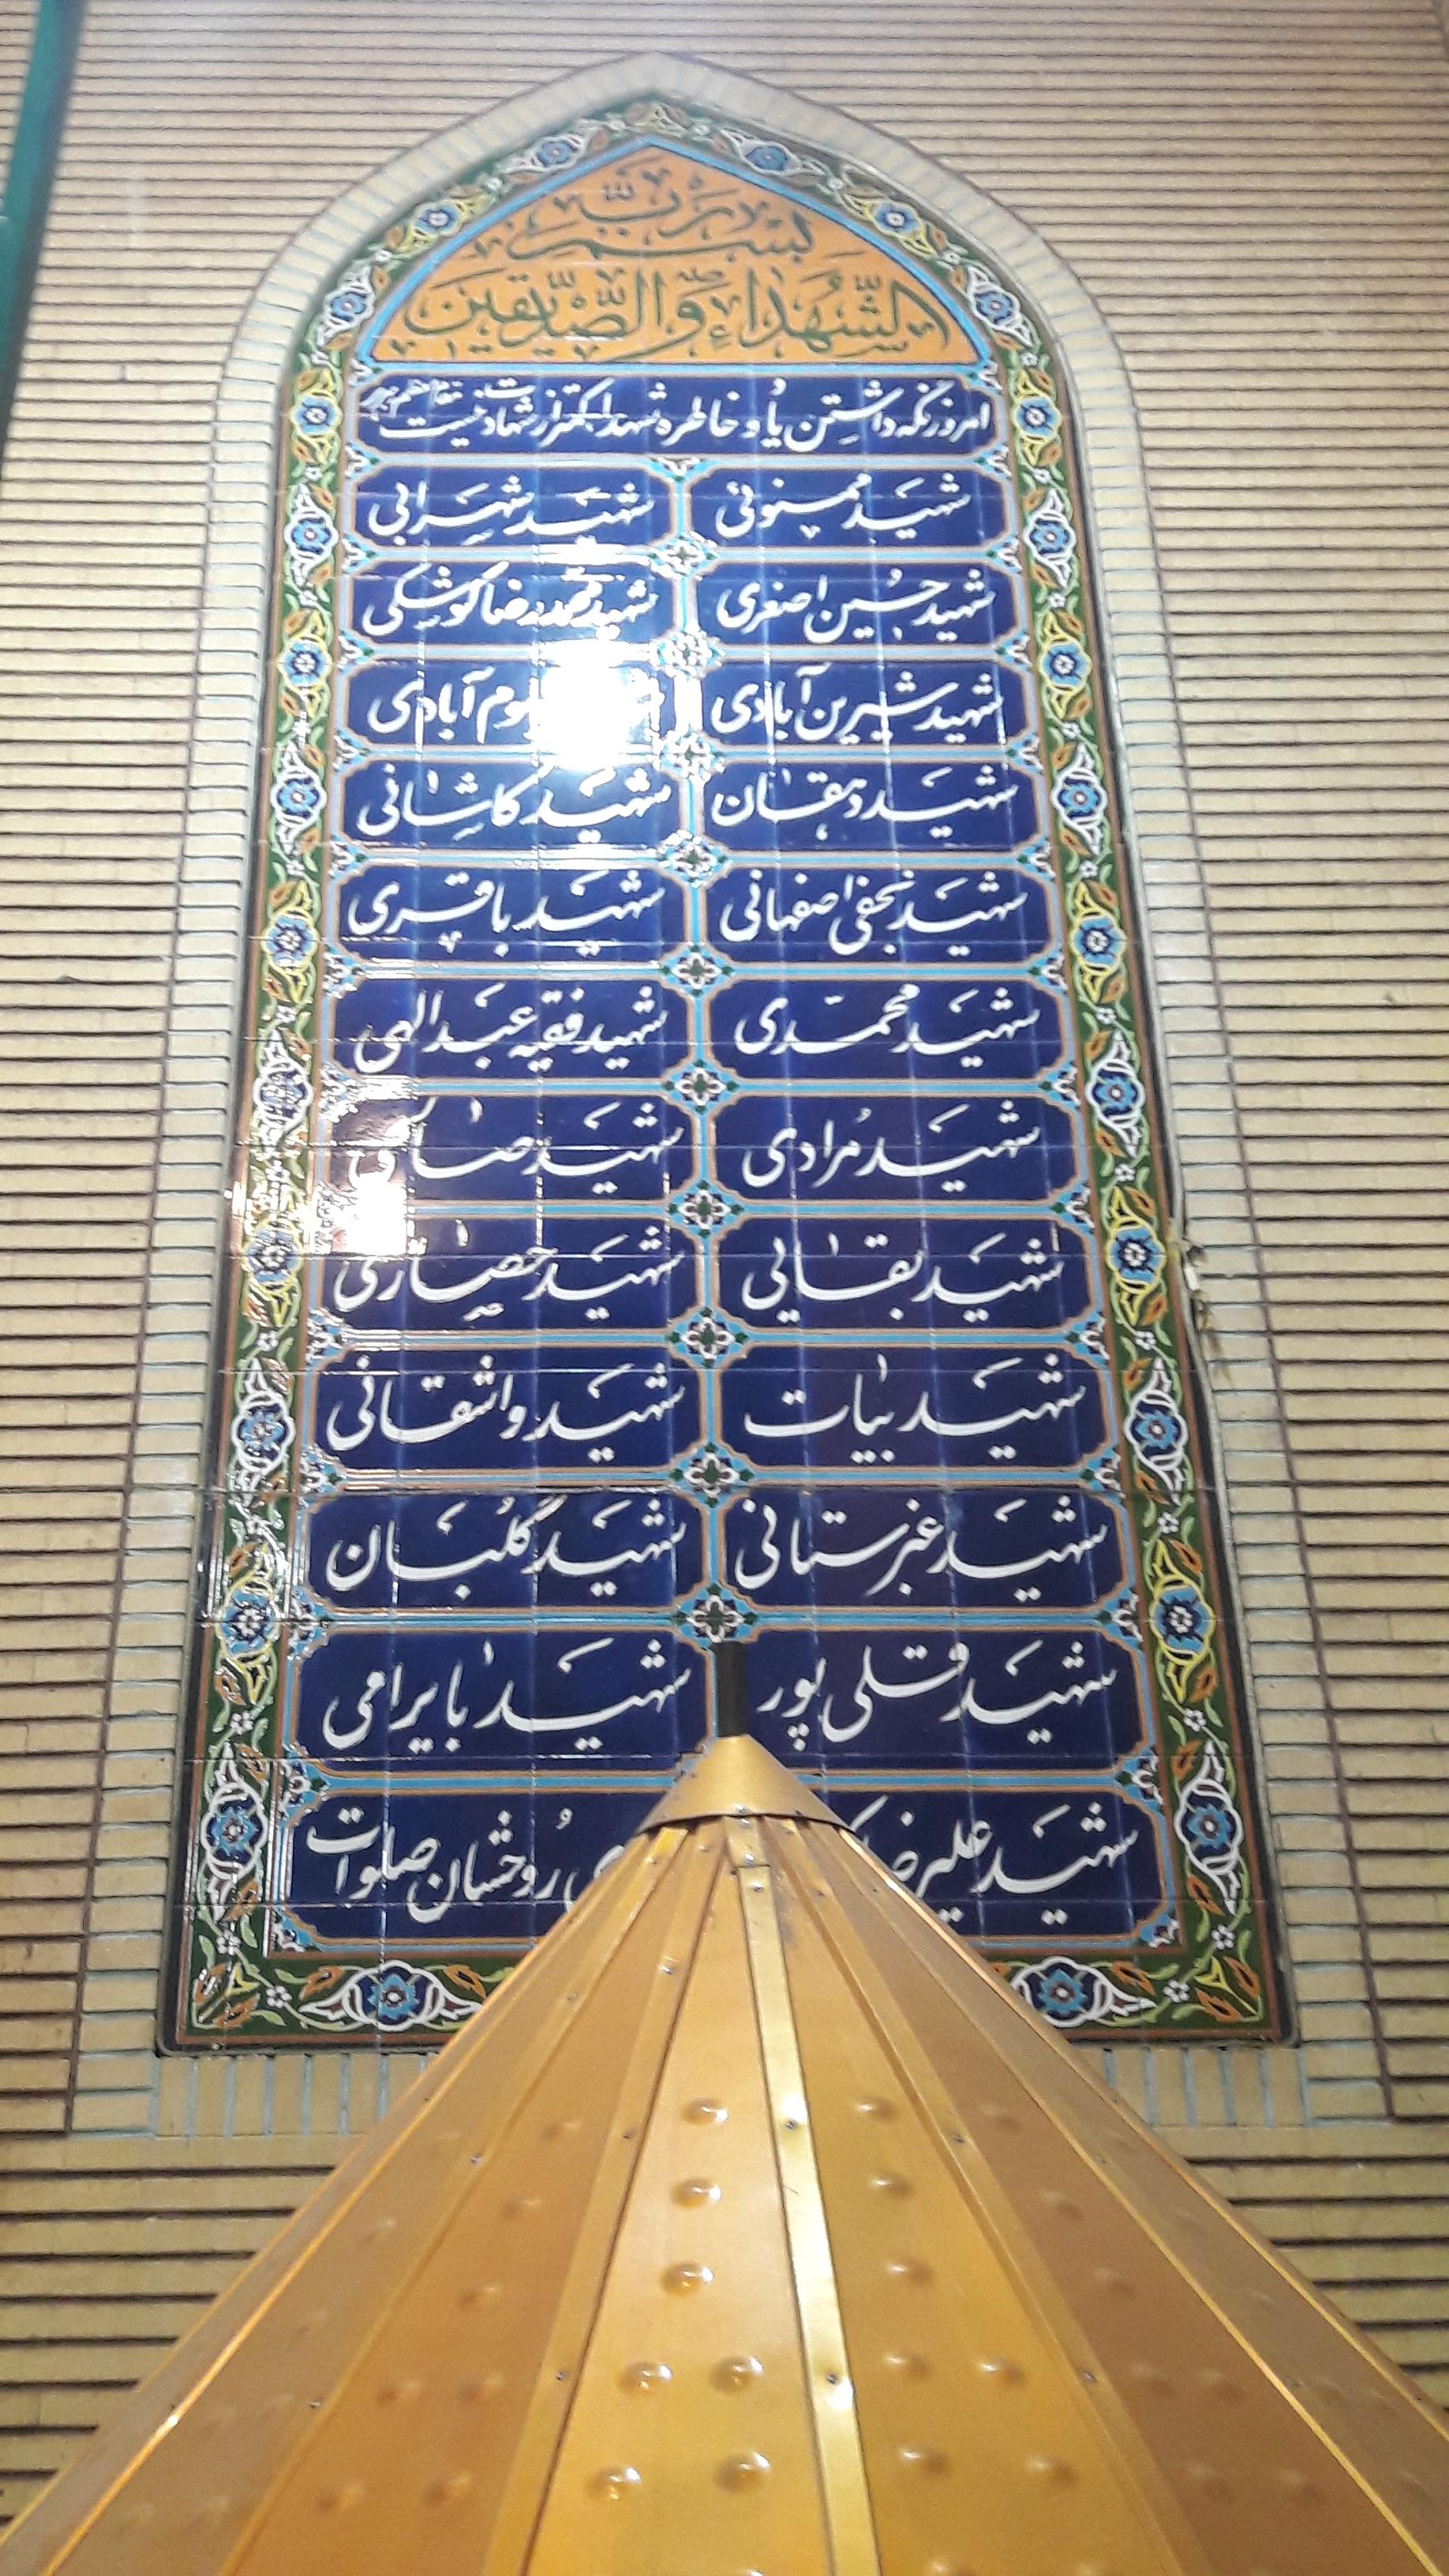 بسم رب
الشهداء و الصدیقین
امروز نگه داشتن یاد و خاطره شهدا کمتر از شهادت نیست مقام معظم رهبری
شهید ممنونی شهید شهرابی
شهید حسین اصغری شهید محمدرضا کوشکی
شهید شیرین آبادی آبادی
شهید دهقان شهید کاشانی
شهید نجفی اصفهانی شهید باقری
شهید محمدی شهید فقیه عبدالهی
شهید مرادی شهید
شهید بقایی شهید حصاری
شهید بیات شهید واشقانی
شهید عنبرستانی شهید گلبان
شهید قلی پور شهید بایرامی
شهید علیرضا روحشان صلوات